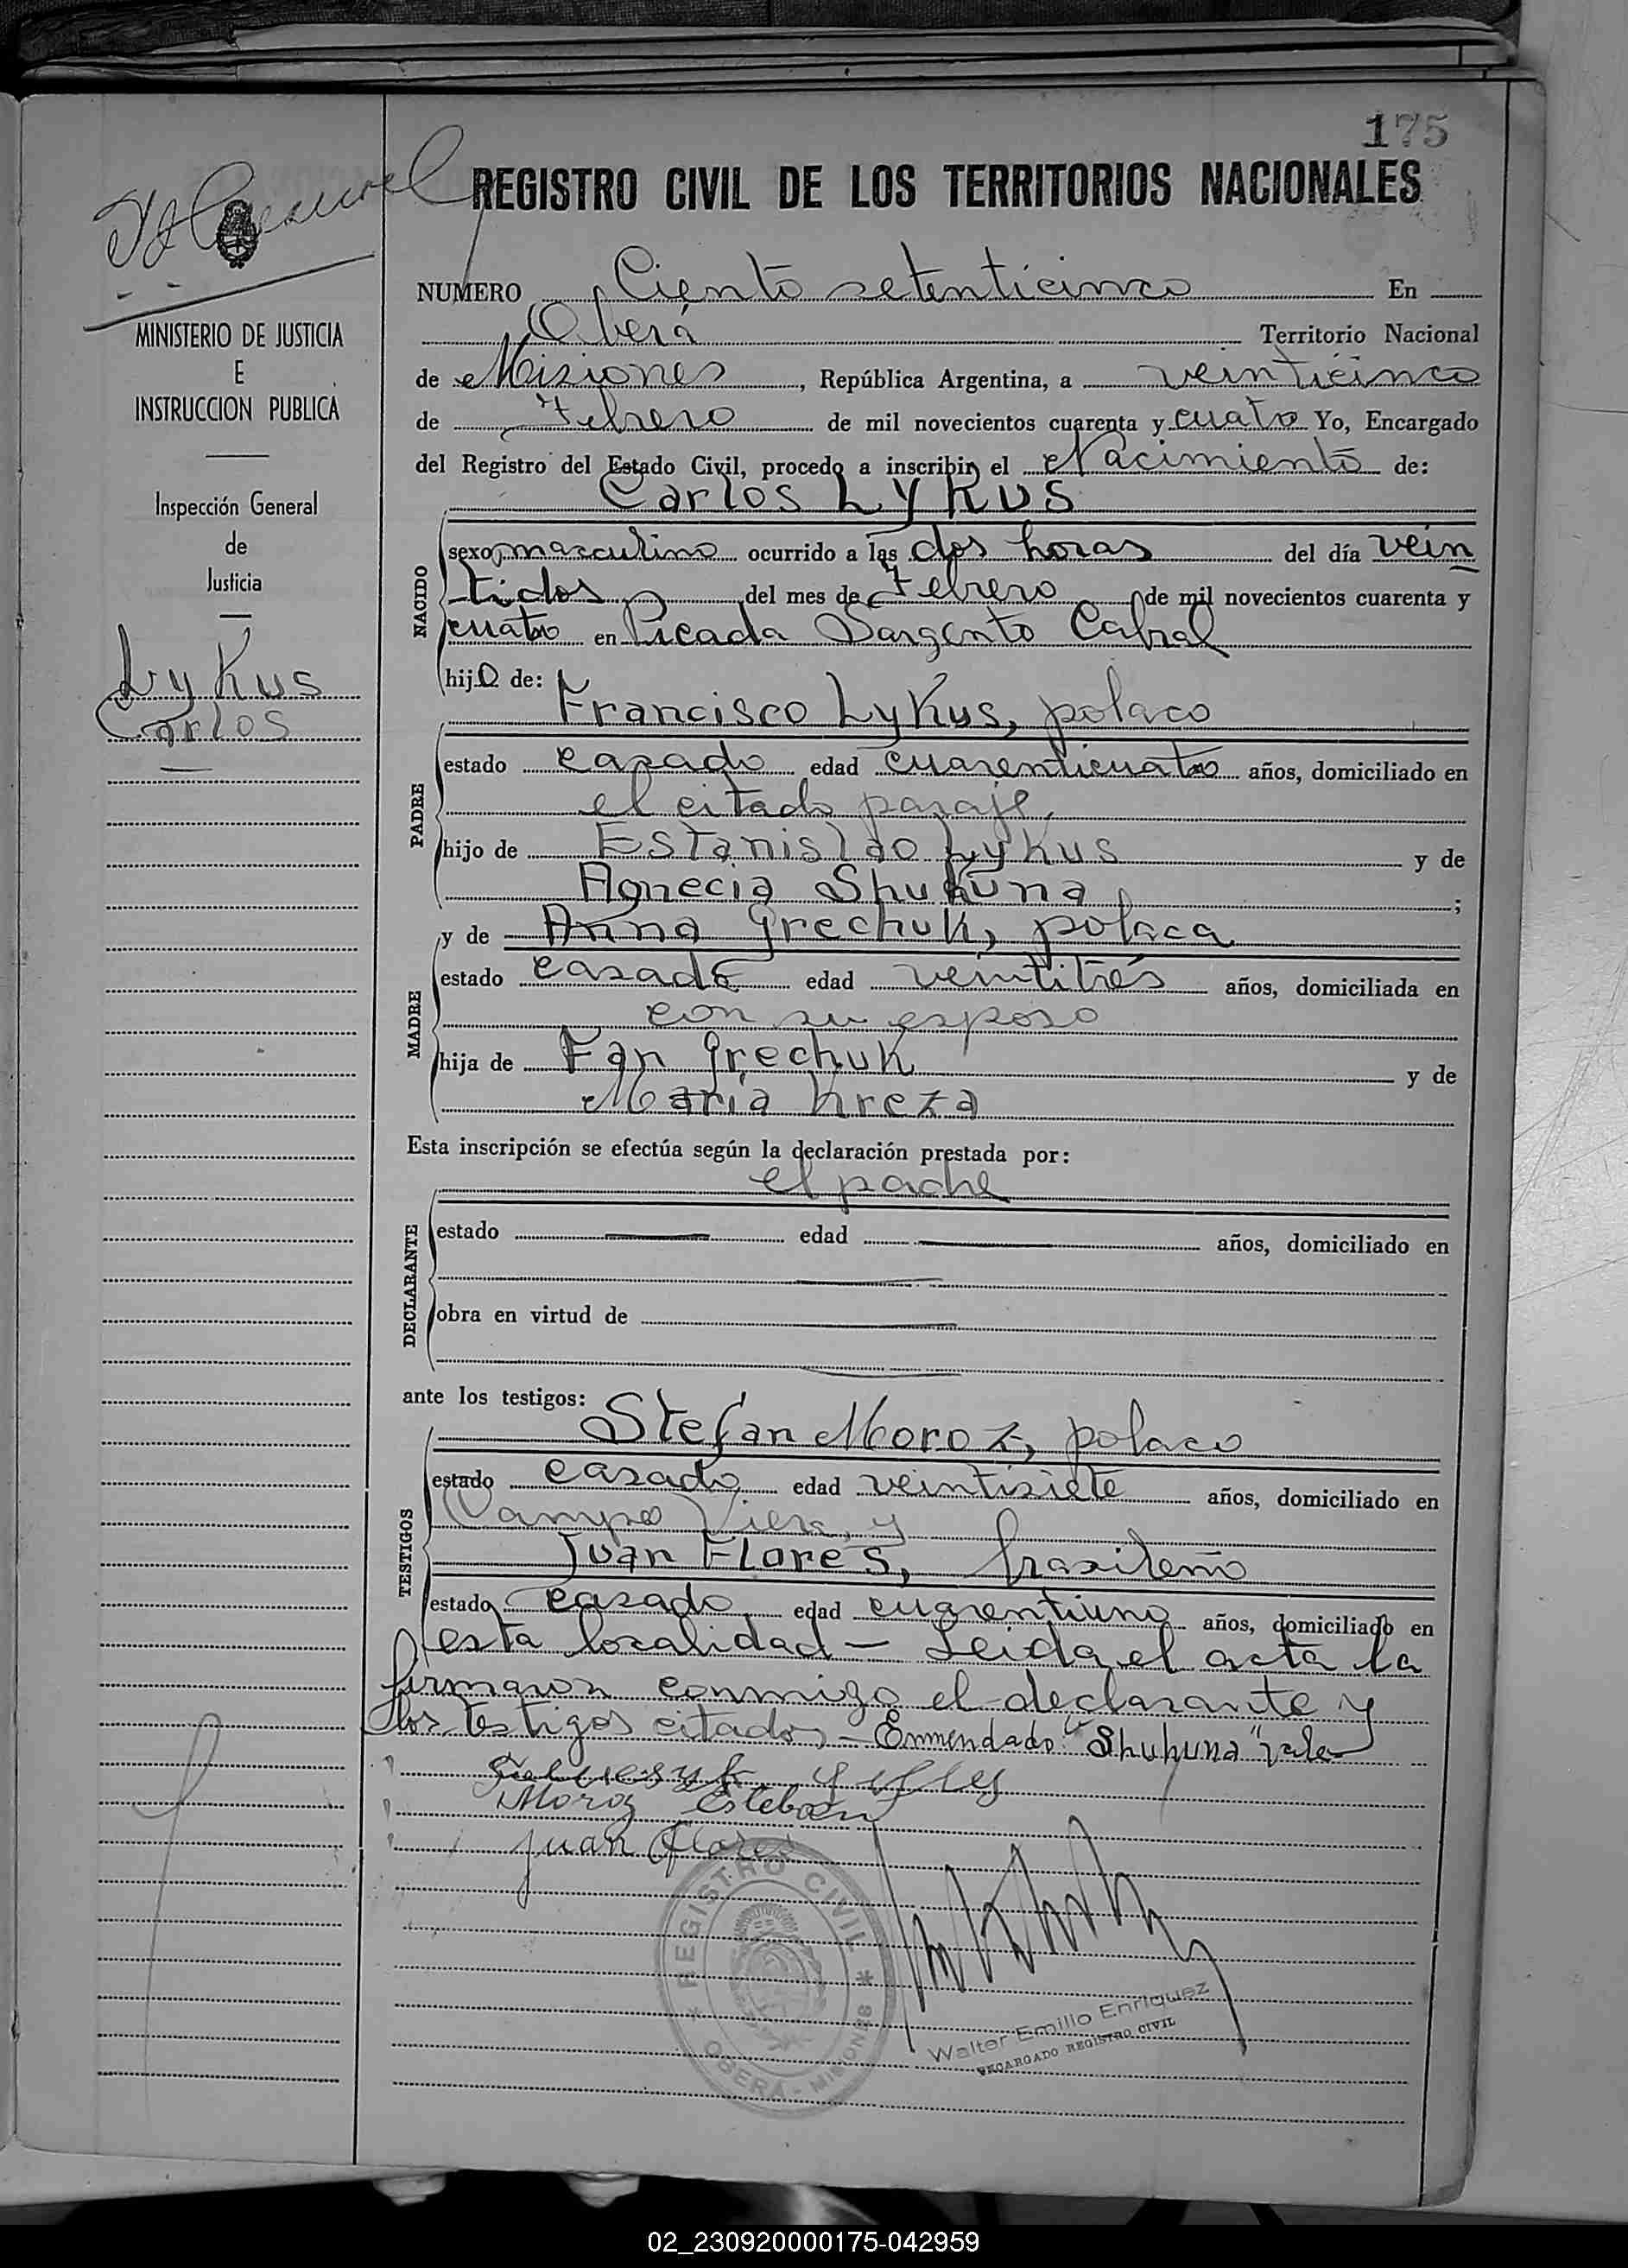 175
REGISTRO CIVIL DE LOS TERRITORIOS NACIONALES
NUMERO Ciento setenticinco En
Oberá Territorio Nacional
de Misiones, República Argentina, a veinticinco
de Febrero de mil novecientos cuarenta y cuatro Yo, Encargado
del Registro del Estado Civil, procedo a inscribir el Nacimiento de:
Carlos Lykus
NACIDO
sexo masculino ocurrido a las dos horas del día vein
tidos del mes de Febrero de mil novecientos cuarenta y
cuatro en Picada Sargento Cabral
hijo de:
Francisco Lykus, polaco
PADRE
estado casado edad cuarenticuatro años, domiciliado en
el citado paraje,
hijo de Estanislao Lykus y de
Agnecia Shukuna ;
y de Anna Grechuk, polaca
MADRE
estado casada edad veintitrés años, domiciliada en
con su esposo
hija de Fan Grechuk y de
María Kreza
Esta inscripción se efectúa según la declaración prestada por:
el padre
DECLARANTE
estado edad años, domiciliado en
obra en virtud de
ante los testigos:
Stefan Moroz, polaco
TESTIGOS
estado casado edad veintisiete años, domiciliado en
Campo Viera, y
Juan Flores, brasileño
estado casado edad cuarentiuno años, domiciliado en
esta localidad — Leida el acta la
firmaron conmigo el declarante y
los testigos citados — Enmendado "Shukuna" vale
Moroz Esteban
Juan Flores
REGISTRO CIVIL
OBERÁ - MISIONES
Walter Emilio Enriquez
ENCARGADO REGISTRO CIVIL
MINISTERIO DE JUSTICIA
E
INSTRUCCION PUBLICA
Inspección General
de
Justicia
Lykus
Carlos
02_230920000175-042959